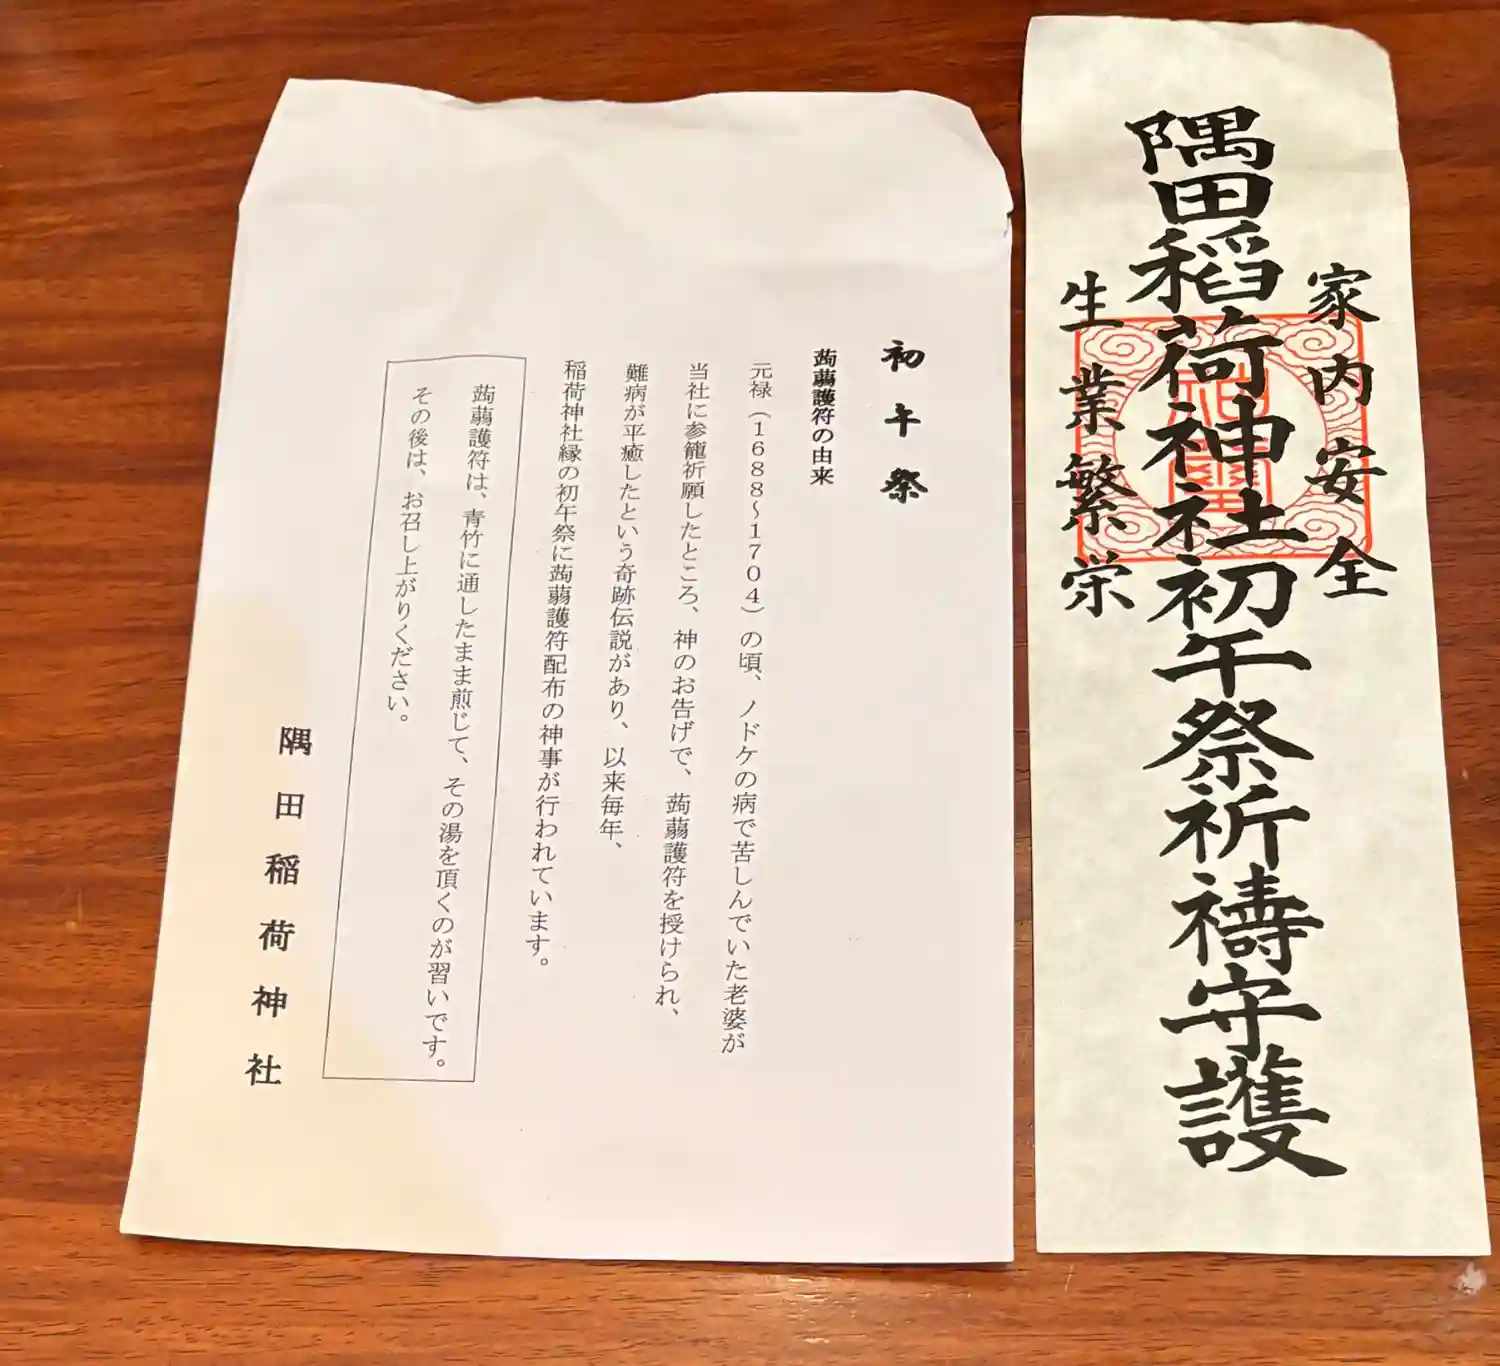 家内安全
隅田稲荷神社初午祭祈禱守護
生業繁栄
初午祭
蒟蒻護符の由来
元禄(1688~1704)の頃、ノドケの病で苦しんでいた老婆が
当社に参籠祈願したところ、神のお告げで、蒟蒻護符を授けられ、
難病が平癒したという奇跡伝説があり、以来毎年、
稲荷神社縁の初午祭に蒟蒻護符配布の神事が行われています。
蒟蒻護符は、青竹に通したまま煎じて、その湯を頂くのが習いです。
その後は、お召し上がりください。
隅田稲荷神社